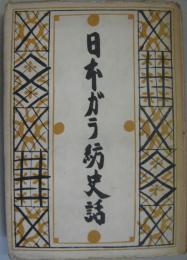 日本ガラ紡史話